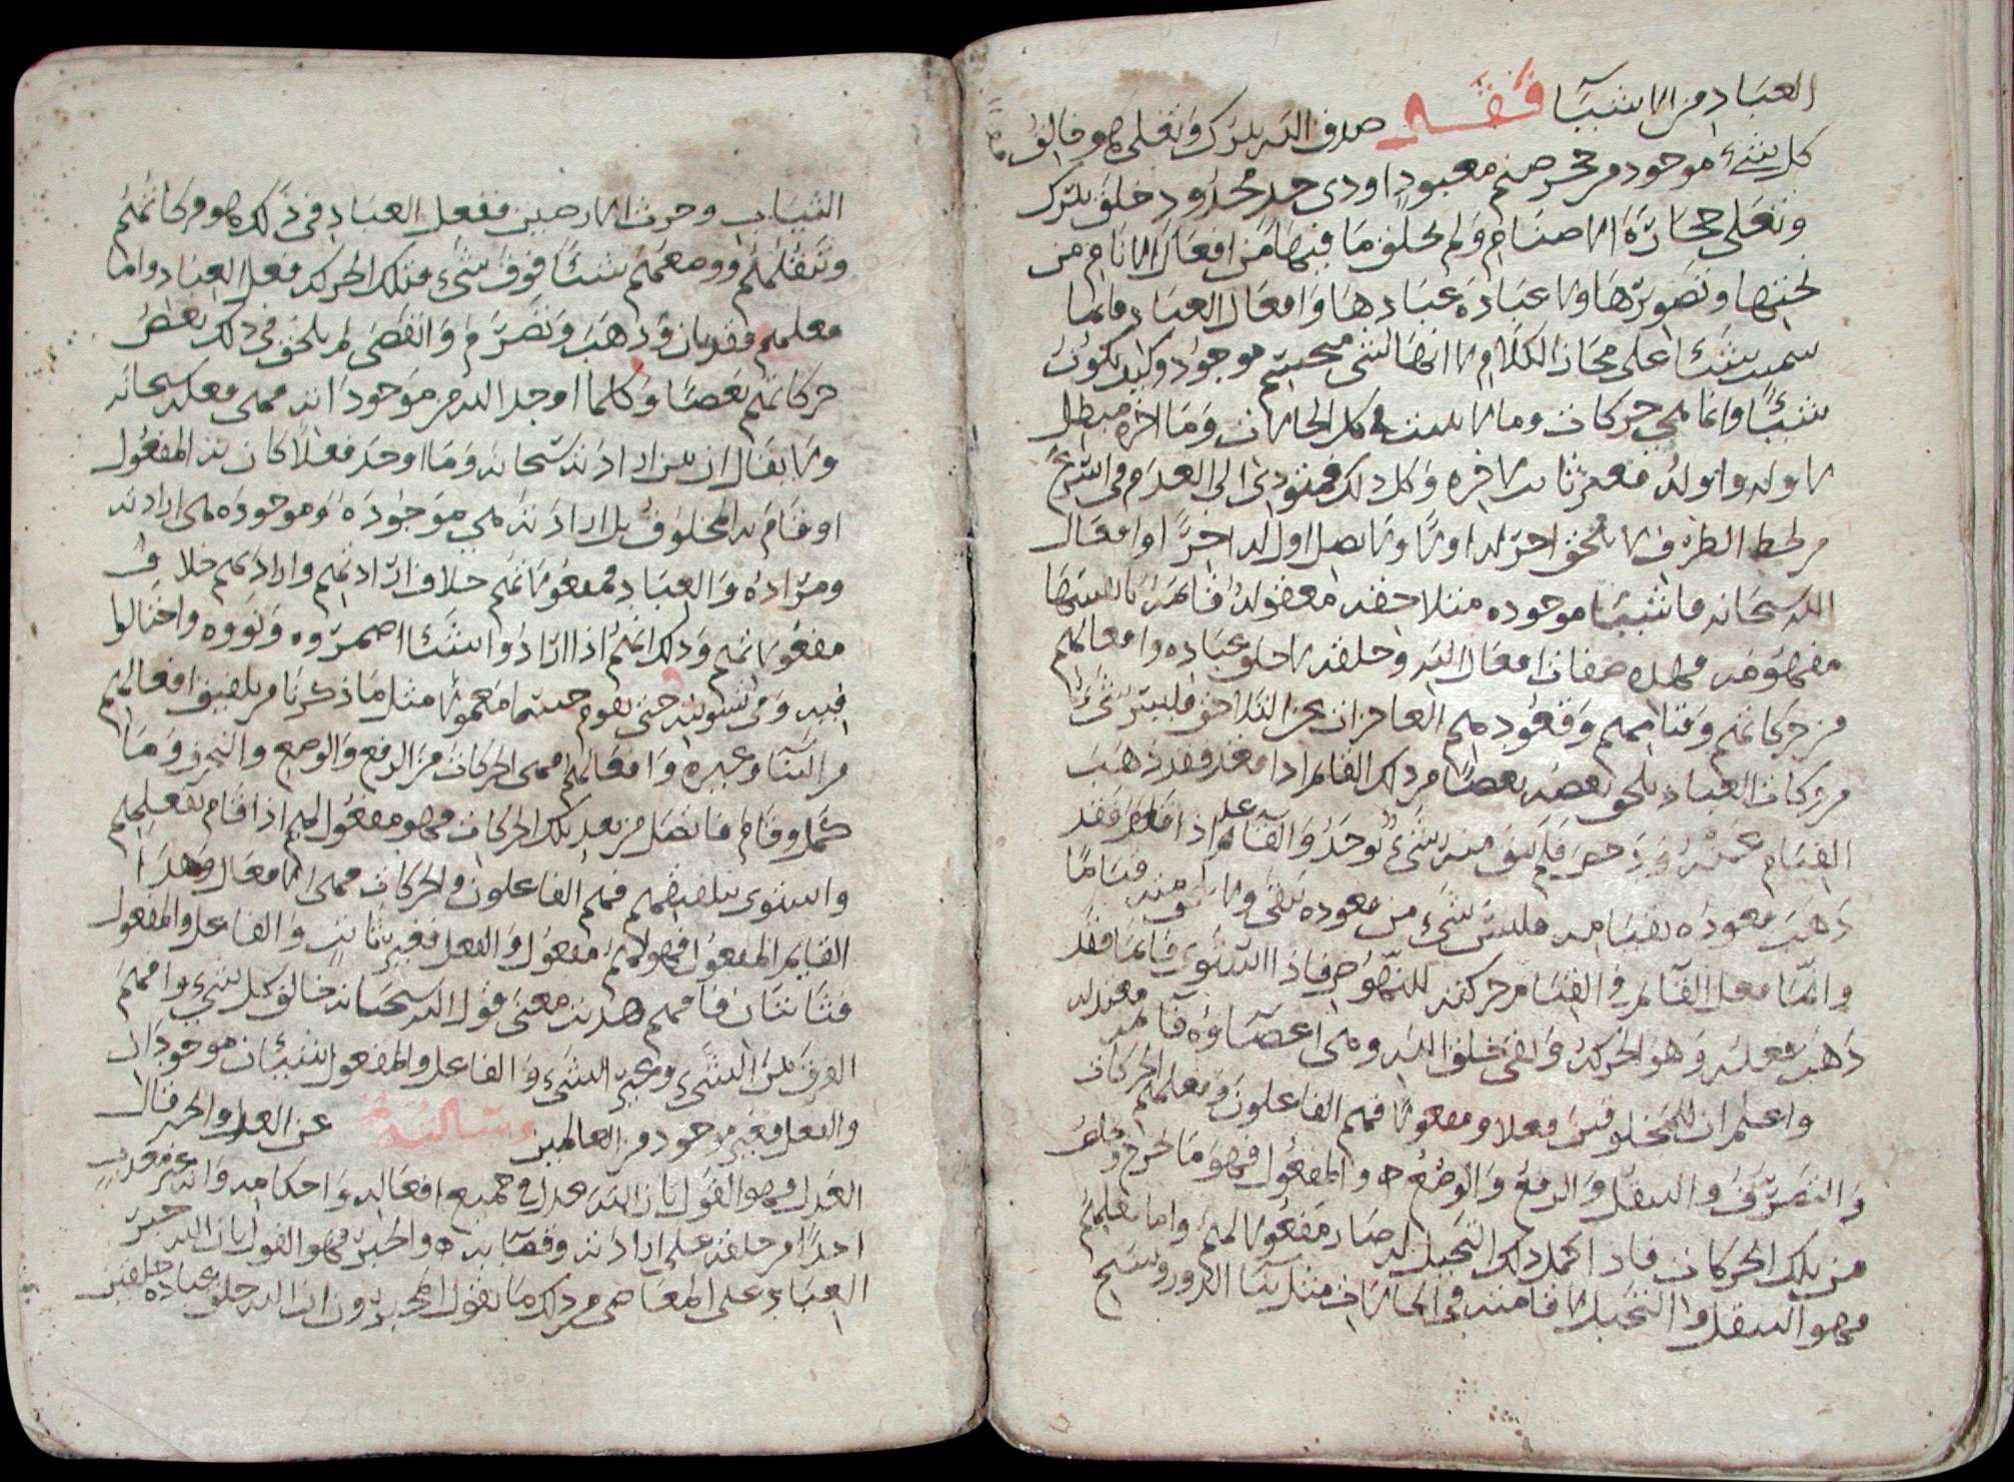 العباد من الاشيآ فقد صدق الله تبرك وتعلى هو خالق
كل شيء موجود من حجر صنم معبود او ذى حد محدود خلق تبرك
وتعلى حجارة الاصنام ولم يخلق ما فيها من افعال الانام من
نحتها وتصويرها ولا عبادة عبادها وافعال العباد فانما
سميت شيئا على مجاز الكلام لا انها لشى مجسم موجود وكيف تكون
شيئا وانما هي حركات ومالا يثبت في كل الحالات وما اخره مبطل
لاوله واوله فغير ثابت لاخره وكل ذلك فمودى الى العدم في اسرع
من لحظ الطرف لا يلحق اخر له اولا ولا يصل اول له اخرا وافعال
الله سبحانه فاشيا موجوده متلاحقه
فهذه صفات افعال الله وخلقه لا خلق عباده وافعالهم
من حركاتهم وقيامهم وقعودهم العاجزات عن التلاحق فليس شئ
من حركات العباد يلحق بعضه بعضا من ذلك القائم اذا قعد فقد ذهب
القيام عنه ودحض فلم يبق منه شيء يوجد والقاعد اذا قام فقد
ذهب قعوده بقيامه فليس شيء من قعوده يبقى ولا
وانما فعل القائم في القيام حركته للنهوض فاذا استوى قائما فقد
ذهب فعله وهو الحركة وبقى خلق الله وهى اعضاؤه قائمة
واعلم ان للمخلوقين فعلا ومفعولا فهم الفاعلون وفعلهم الحركات
والتصرف والتنقل والرفع والوضع والمفعول فهو ما خرج
من تلك الحركات فاذا كمل ذلك التحيل له صار مفعولا لهم واما فعلهم
فهو التنقل والتحيل لاقامته في الحالات مثل بنآ الدور ونسج
الثياب وحرث الارضين ففعل العباد في ذلك هو حركاتهم
وتنقلهم ووضعهم شيئا فوق شيء فتلك الحركه فعل العباد واما
فعلهم فقد بان وذهب وتصرم وانقضى لم يلحق في ذلك بعض
حركاتهم بعضا وكلما اوجد الله من موجوداته فهى فعله سبحانه
ولا يقال ان بين ارادته سبحانه وما اوجد فعلا كان به المفعول
او قام به المخلوق بل ارادته هي موجوده وموجوده هى ارادته
ومراده والعباد فمفعولاتهم خلاف ارادتهم وارادتهم خلاف
مفعولاتهم وذلك انهم اذا ارادوا شيئا اضمروه ونووه واحتالوا
فيه وفي تسويته حتى يقوم جسما معمولا مثل ما ذكرنا من تلفيق افعالهم
من البنآ وغيره وافعالهم فهى الحركات من الرفع والوضع والنجر وما
كمل وقام فاتصل من بعد تلك الحركات فهو مفعول لهم اذا قام بفعلهم
واستوى بتلفيقهم فهم الفاعلون والحركات فهى الافعال وهذا
القايم المفعول فهو لهم مفعول والفعل فغير ثابت والفاعل والمفعول
فثابتان فافهم هديت معنى قول الله سبحانه خالق كل شيء وافهم
الفرق بين الشيء وغير الشيء والفاعل والمفعول شيئان موجودان
والفعل فغير موجود من العالمين وسالته عن العدل والجبر فقال
العدل فهو القول بان الله عدل في جميع افعاله واحكامه وانه غير معذب
احدا من خلقه على ارادته وقضائه والجبر فهو القول بان الله جبر
العباد على المعاصى من ذلك ما يقول المجبرون ان الله خلق عباده خلقين